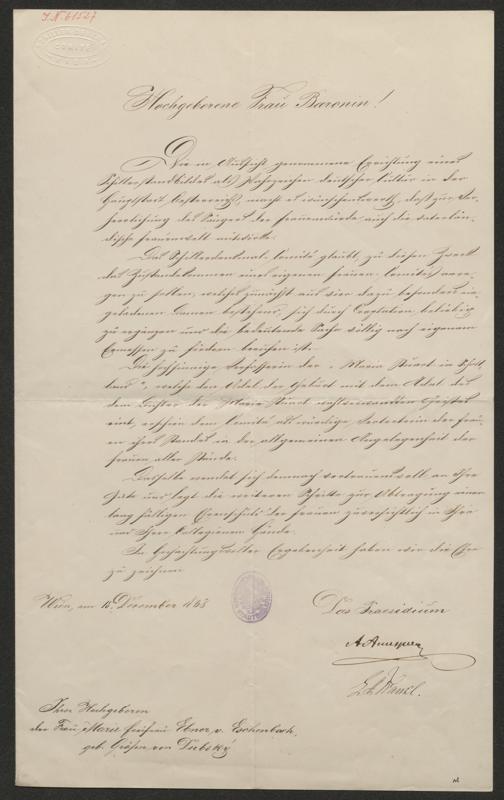 J.N. 61527
Hochgeborene Frau Baronin!
Die in Aussicht genommene Errichtung eines
Schillerstandbildes als Wahrzeichen deutscher Cultur in der
Hauptstadt Oesterreichs, macht es wünschenswerth, daß zur Ver-
herrlichung des Sängers der Frauenwürde auch die vaterlän-
dische Frauenwelt mitwirke.
Das Schillerdenkmal-Comité glaubt, zu diesem Zweck
das Zustandekommen eines eigenen Frauen-Comités anre-
gen zu sollen, welches zunächst aus vier dazu besonders ein-
geladenen Damen bestehend, sich durch Cooptation beliebig
zu ergänzen und die bedeutende Sache völlig nach eigenem
Ermessen zu fördern berufen ist.
Die hochsinnige Verfasserin der „Maria Stuart in Schott-
land", welche den Adel der Geburt mit dem Adel des
dem Dichter der Maria Stuart wahlverwandten Geistes
eint, erschien dem Comité als würdige Vertreterin der Frau-
en ihres Standes in der allgemeinen Angelegenheit der
Frauen aller Stände.
Dasselbe wendet sich demnach vertrauensvoll an Ihre
Güte und legt die weiteren Schritte zur Abtragung einer
lang fälligen Ehrenschuld der Frauen zuversichtlich in Ihre
und Ihrer Colleginnen Hände.
In hochachtungsvoller Ergebenheit haben wir die Ehre
zu zeichnen
Wien, am 18. December 1868
Das Praesidium
Ihrer Hochgeboren
der Frau Marie Freifrau Ebner v. Eschenbach,
geb. Gräfin von Dubsky